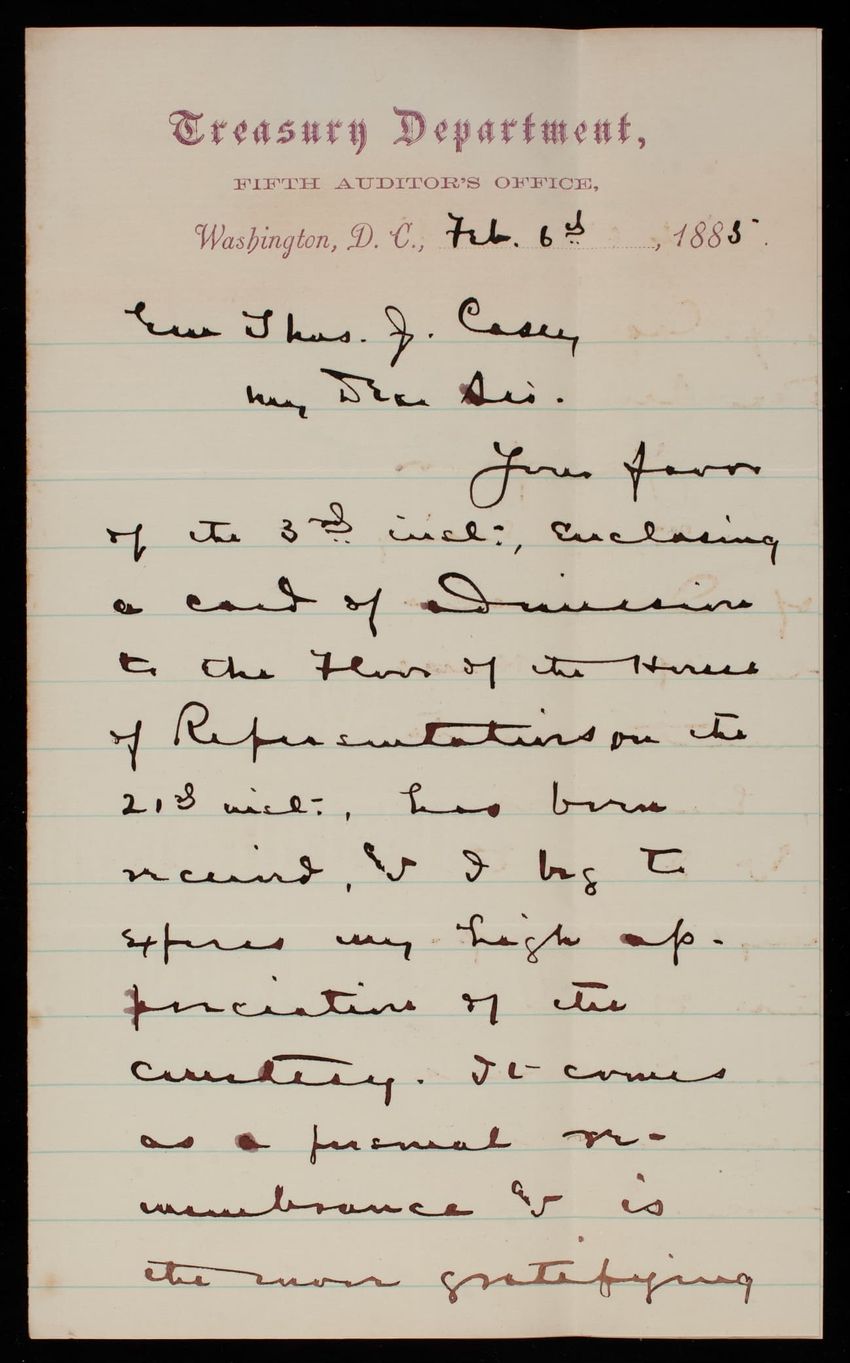 Treasury Department,
FIFTH AUDITOR'S OFFICE,
Washington, D. C., Feb. 6th, 1885.
Thos. L. Casey
My Dear Sir.
Your favor
of the 3rd inst:, enclosing
a card of admission
to the Floor of the House
of Representatives on the
21st inst:, has been
received, & I beg to
express my high ap-
preciation of the
courtesy. It comes
as a personal re-
membrance & is
the more gratifying